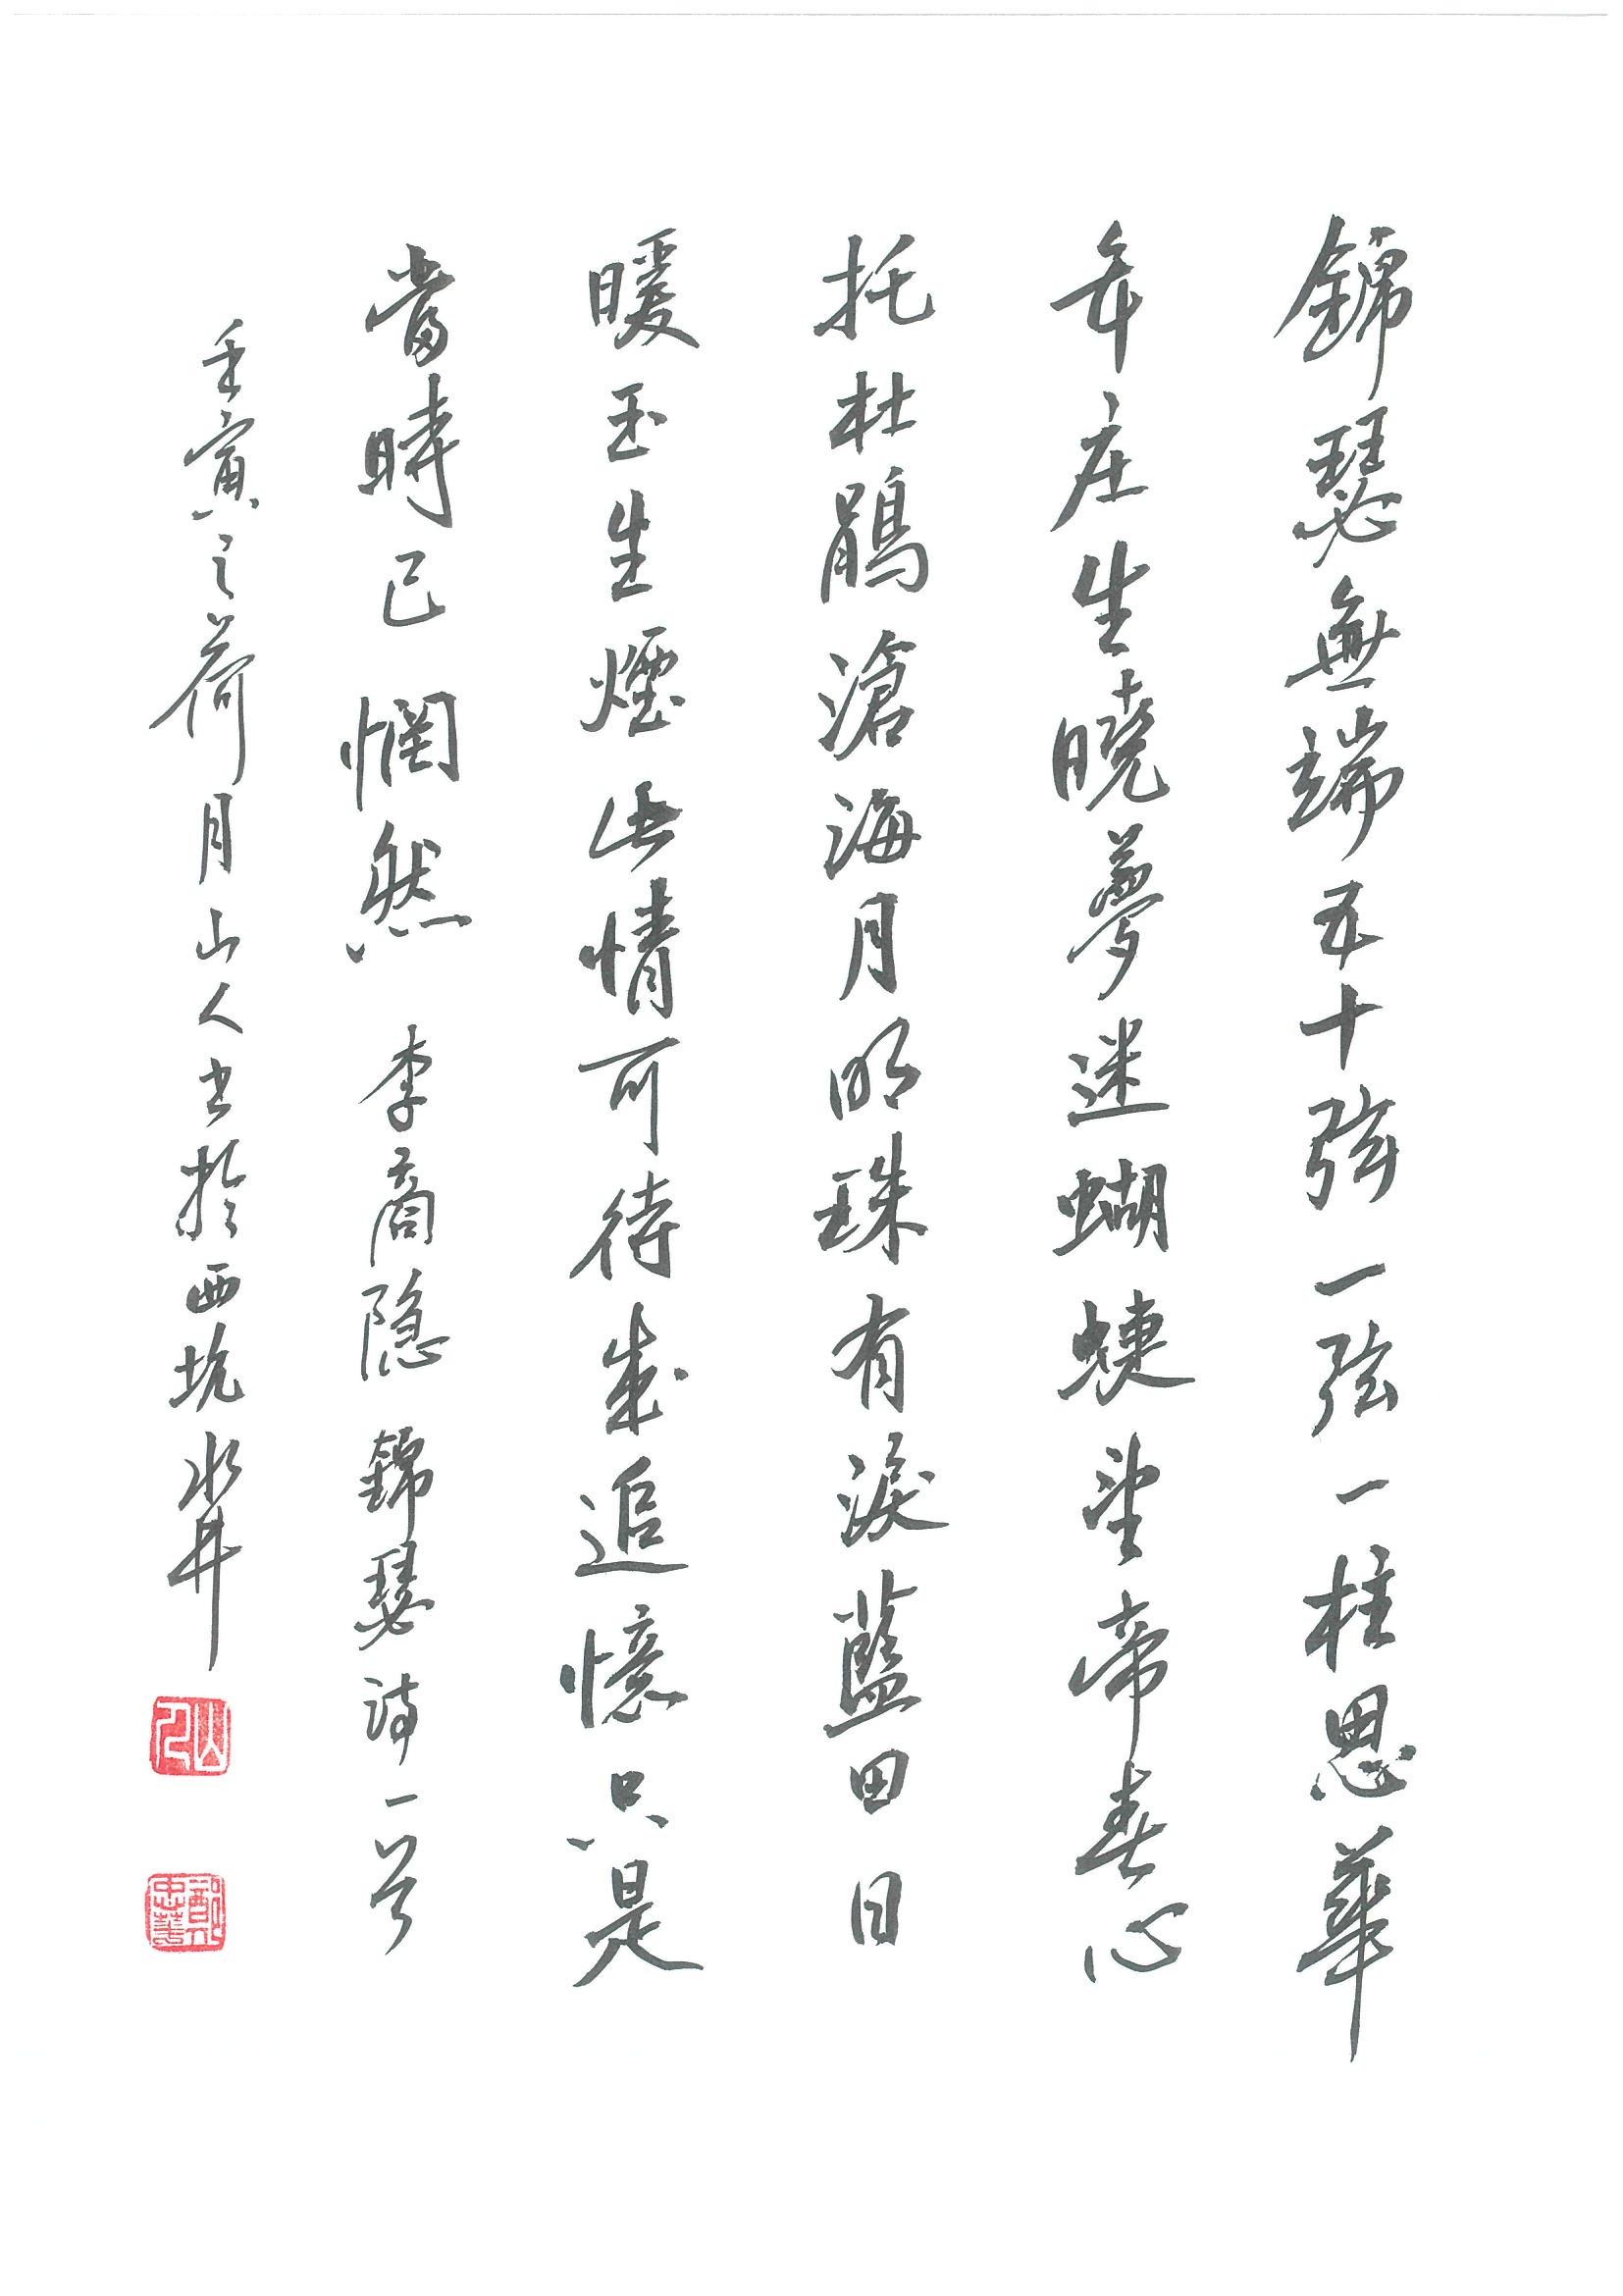 錦瑟無端五十弦一弦一柱思華
年庄生曉夢迷蝴蝶望帝春心
托杜鵑滄海月明珠有淚藍田日
暖玉生煙此情可待成追憶只是
當時已惘然 李商隐 錦瑟詩一首
壬寅之荷月山人书於西坑水井
山人